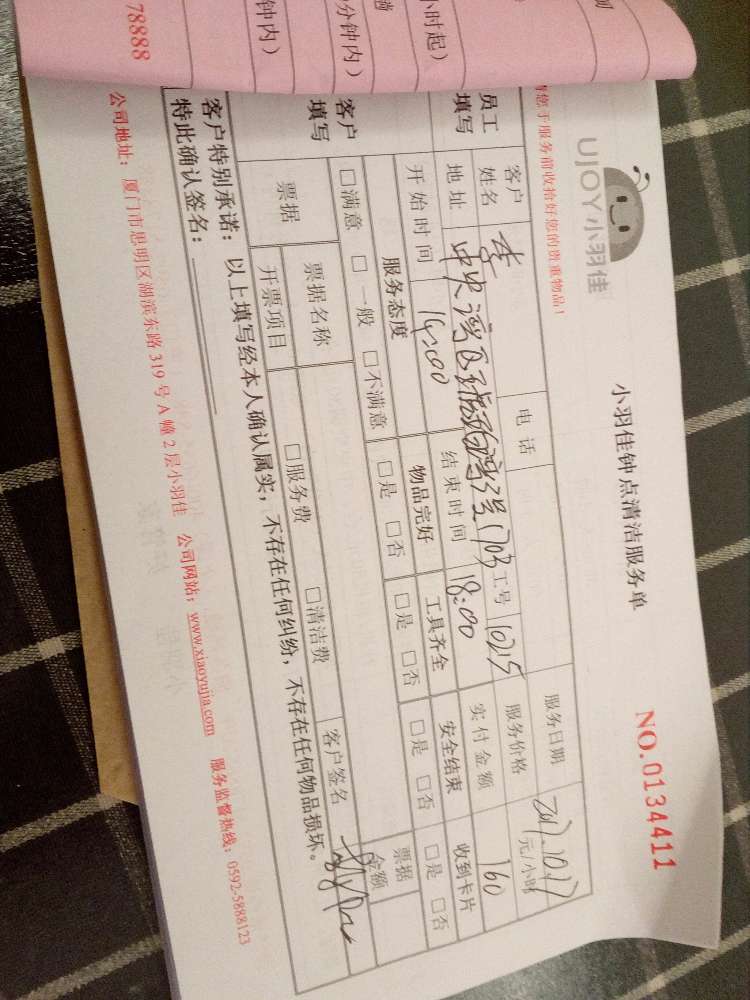 UJOY小羽佳
小羽佳钟点清洁服务单
NO.0134411
您于服务前收拾好您的贵重物品!
服务日期 2017.10.17
员工填写
客户姓名 李 电话 服务价格 元/小时
地址 中央湾区 1703 工号 1025 实付金额 160
开始时间 14:00 结束时间 18:00
客户填写
服务态度 物品完好 工具齐全 安全结束 收到卡片
□满意 □一般 □不满意 □是 □否 □是 □否 □是 □否 □是 □否
票据 票据名称 □服务费 □清洁费 票据金额
开票项目 客户签名
客户特别承诺:以上填写经本人确认属实,不存在任何纠纷,不存在任何物品损坏。
特此确认签名:
公司地址:厦门市思明区湖滨东路 319 号 A 幢 2 层小羽佳 公司网站:www.xiaoyujia.com 服务监督热线:0592-5888123
小时起)
分钟内)
钟内)
78888